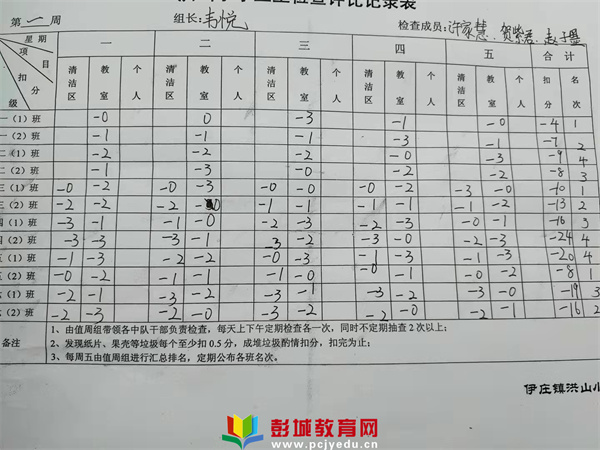 检查评比记录表
第一周 组长：韦悦 检查成员：许家慧、贺紫君、赵子墨
星期 一 二 三 四 五 合计
项目 扣分 清洁区 教室 个人 清洁区 教室 个人 清洁区 教室 个人 清洁区 教室 个人 清洁区 教室 个人 扣分 名次
级
一（1）班 -0 0 -3 -1 -0 -4 1
一（2）班 -1 -1 -1 -3 -1 -7 2
二（1）班 -2 -2 -2 -0 -3 -9 4
二（2）班 -1 -3 -0 -2 -2 -8 3
三（1）班 -0 -2 -0 -3 -0 -0 -0 -2 -3 -0 -10 1
三（2）班 -2 -2 -2 -0 -1 -1 -1 -1 -2 -1 -13 2
四（1）班 -3 -1 -1 -0 -2 -3 -2 -3 -0 -1 -16 3
四（2）班 -3 -3 -3 -1 -3 -2 -3 -0 -2 -3 -24 4
五（1）班 -1 -3 -2 -2 -0 -3 -1 -4 -3 -1 -20 4
五（2）班 -0 -2 -1 -1 -1 -0 -0 -1 -0 -1 -8 1
六（1）班 -2 -1 -3 -2 -3 -1 -3 -2 -3 -0 -19 3
六（2）班 -2 -3 -2 -0 -3 -2 -2 -0 -2 -1 -16 2
备注
1、由值周组带领各中队干部负责检查，每天上下午定期检查各一次，同时不定期抽查2次以上；
2、发现纸片、果壳等垃圾每个至少扣0.5分，成堆垃圾酌情扣分，扣完为止；
3、每周五由值周组进行汇总排名，定期公布各班名次。
伊庄镇洪山小
彭城教育网
www.pcjyedu.cn